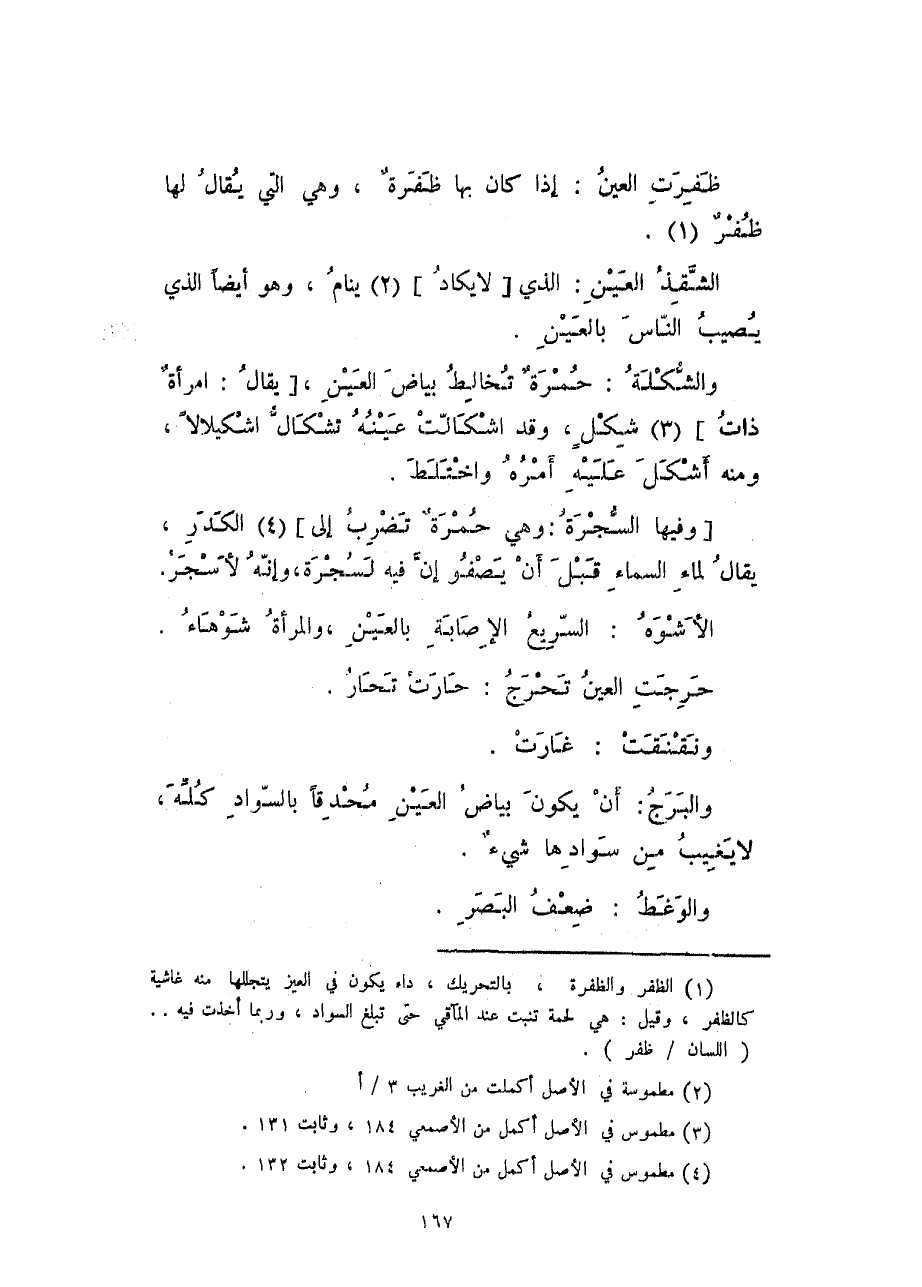 ظَفِرَتِ العينُ : إذا كان بها ظَفَرةٌ ، وهي التي يُقالُ لها
ظُفْرٌ (١) .
الشَّقِذُ العَيْنِ : الذي [ لايكادُ ] (٢) ينامُ ، وهو أيضاً الذي
يُصيبُ النّاسَ بالعَيْنِ .
والشُّكْلَةُ : حُمْرَةٌ تُخالِطُ بياضَ العَيْنِ ، [ يقالُ : امرأةٌ
ذاتُ ] (٣) شِكْلٍ ، وقد اشْكَالّتْ عَيْنُهُ تشْكَالُّ اشْكيلالاً ،
ومنه أَشْكَلَ عَلَيْهِ أَمْرُهُ واخْتَلَطَ .
[ وفيها السُّجْرَةُ : وهي حُمْرَةٌ تَضْرِبُ إلى ] (٤) الكَدَرِ ،
يقالُ لماءِ السماءِ قَبْلَ أنْ يَصْفُو إنَّ فيه لَسُجْرَة، وإنّهُ لأَسْجَرْ.
الأَشْوَهُ : السّرِيعُ الإِصَابَةِ بالعَيْنِ ، والمرأةُ شَوْهَاءُ .
حَرِجَتِ العينُ تَحْرَجُ : حَارَتْ تَحَارُ .
ونَقْنَقَتْ : غَارَتْ .
والبَرَجُ: أَنْ يكونَ بياضُ العَيْنِ مُحْدِقاً بالسّوادِ كُلِّهَ،
لايَغِيبُ مِن سَوادِها شيءٌ .
والوَغَطُ : ضِعْفُ البَصَرِ .
(١) الظفر والظفرة ، بالتحريك ، داء يكون في العيز يتجللها منه غاشية
كالظفر ، وقيل : هي لحمة تنبت عند المآقي حتى تبلغ السواد ، وربما أخذت فيه . .
( اللسان / ظفر ) .
(٢) مطموسة في الأصل أكملت من الغريب ٣ / أ
(٣) مطموس في الأصل أكمل من الأصمعي ١٨٤ ، وثابت ١٣١ .
(٤) مطموس في الأصل أكمل من الأصمعي ١٨٤ ، وثابت ١٣٢ .
١٦٧